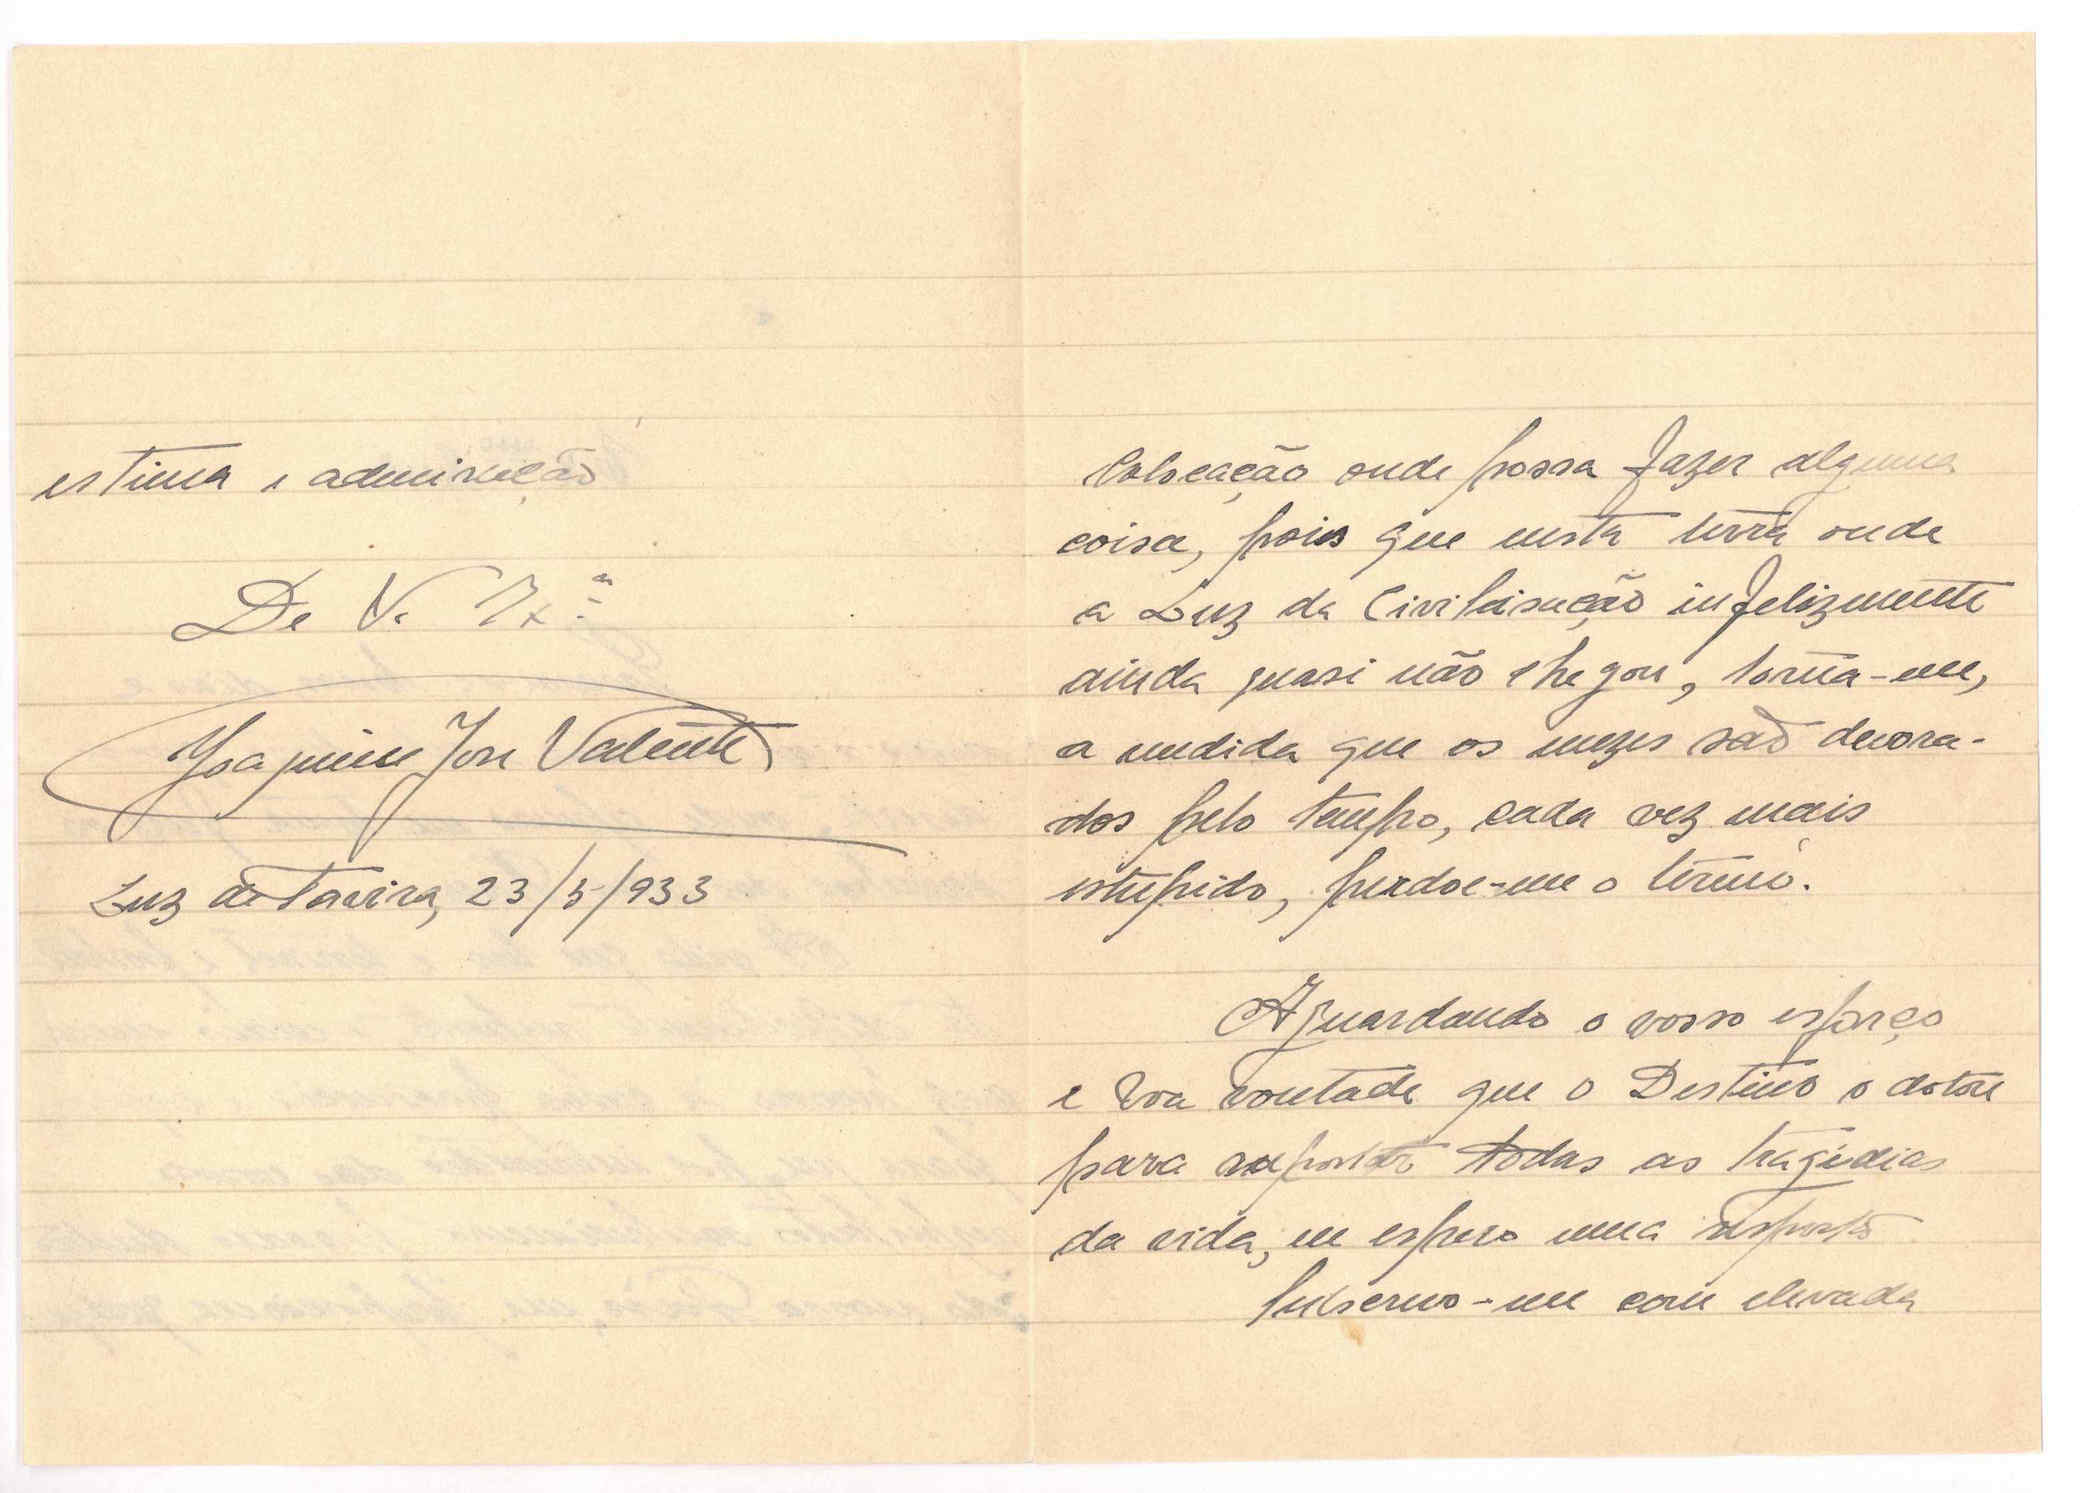 Colocação onde possa fazer alguma
coisa, pois que nesta terra onde
a Luz da Civilisação infelizmente
ainda quasi não chegou, torna-me,
a medida que os mezes são devora-
dos pelo tempo, cada vez mais
estupido, perdoe-me o termo.
Aguardando o vosso esforço
e boa vontade que o Destino o dotou
para suportar todas as tragédias
da vida, eu espero uma resposta
Subscrevo-me com elevada
estima e admiração
De V. Ex.ª
Joaquim José Valente
Luz de Tavira, 23/5/933